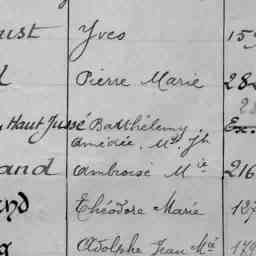 ust Yves 159
d Pierre Marie 282
28
Haut Jussé Barthélemy Ex.
Amédée, M.ie Jh
and Ambroise M.ie 216
nd Théodore Marie 127
g Adolphe Jean M.ie 179